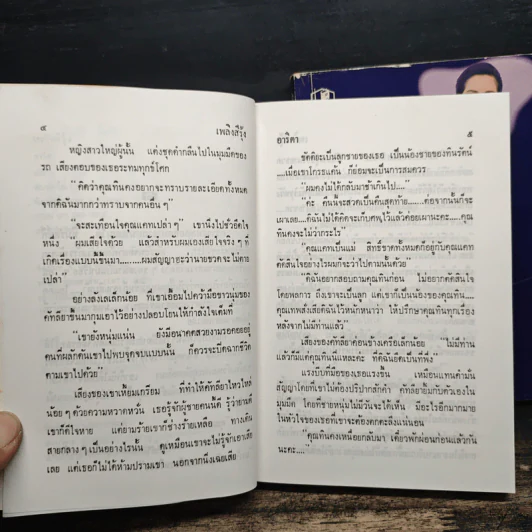 ๔ เพลิงสีรุ้ง
หญิงสาวใหญ่ผู้นั้น แต่งชุดดำกลืนไปในมุมมืดของ
รถ เสียงตอบของเธอระทมทุกข์โศก
"คิดว่าคุณทินคงอยากจะทราบรายละเอียดทั้งหมด
จากดิฉันมากกว่าทราบจากคนอื่นๆ"
"จะสะเทือนใจคุณแคทเปล่าๆ" เขานิ่งไปชั่วอึดใจ
หนึ่ง "ผมเสียใจด้วย แล้วสำหรับผมเองเสียใจจริงๆ ที่
เกิดเรื่องแบบนี้ขึ้นมา.........ผมสัญญาฮะว่านายชวดจะไม่ตาย
เปล่า"
อย่างลังเลเล็กน้อย ที่เขาเอื้อมไปคว้ามือขาวนุ่มของ
คัทลียาขึ้นมากุมเอาไว้อย่างปลอบโยนให้กำลังใจเต็มที่
"เขายังหนุ่มแน่น ยังมีอนาคตสวยงามรอคอยอยู่
คนที่ผลักดันเขาไปพบจุดจบแบบนั้น ก็ควรจะปิดฉากชีวิต
ตามเขาไปด้วย"
เสียงของเขาเหี้ยมเกรียม ที่ทำให้คัทลียาไหวไหล่
น้อยๆ ด้วยความหวาดหวั่น เธอรู้จักผู้ชายคนนี้ดี รู้ว่ายามดี
เขาก็ดีใจหาย แต่ยามร้ายเขาก็ช่างร้ายเหลือ ทางเดิน
สายกลางๆ เป็นอย่างไรนั้น ดูเหมือนเขาจะไม่รู้จักเอาเสีย
เลย แต่เธอก็ไม่ได้ห้ามปรามเขา นอกจากนิ่งเฉยเสีย
อาริตา ๕
ชัดิยะเป็นลูกชายของเธอ เป็นน้องชายของทินรัตน์
....เมื่อเขาโกรธแค้น ก็ย่อมจะเป็นการสมควร
"ผมคงไม่ได้กลับมาช้าเกินไป...."
"ค่ะ คืนนี้จะสวดเป็นคืนสุดท้าย......ต่อจากนั้นก็จะ
เผาเลย....ดิฉันไม่ได้คิดจะเก็บศพไว้แล้วค่อยเผานะคะ.....คุณ
ทินคงจะไม่ว่ากระไร"
"คุณแคทเป็นแม่ สิทธิ์ขาดทั้งหมดก็อยู่กับคุณแคท
ตัดสินใจอย่างไรผมก็จะว่าไปตามนั้นด้วย"
"ดิฉันอยากสอบถามคุณทินก่อน ไม่อยากตัดสินใจ
โดยพลการ ถึงเขาจะเป็นลูก แต่เขาก็เป็นน้องของคุณทิน....
คุณเทพสั่งเสียดิฉันไว้หนักหนาว่า ให้ปรึกษาคุณทินทุกเรื่อง
หลังจากไม่มีท่านแล้ว"
เสียงของคัทลียาค่อนข้างเครือเล็กน้อย "ไม่มีท่าน
แล้วก็มีแต่คุณทินนี่แหละค่ะ ที่ดิฉันยึดเป็นที่พึ่ง"
แรงบีบที่มือของเธอแรงขึ้น เหมือนแทนคำมั่น
สัญญาโดยที่เขาไม่ต้องปริปากสักคำ คัทลียายิ้มกับตัวเองใน
มุมมืด โดยที่ชายหนุ่มไม่มีวันจะได้เห็น มีอะไรอีกมากมาย
ในหัวใจของเธอที่เขาจะต้องตกตะลึงแน่นอน
"คุณทินคงเหนื่อยกลับมา เดี๋ยวพักผ่อนก่อนแล้วกัน
นะคะ...."